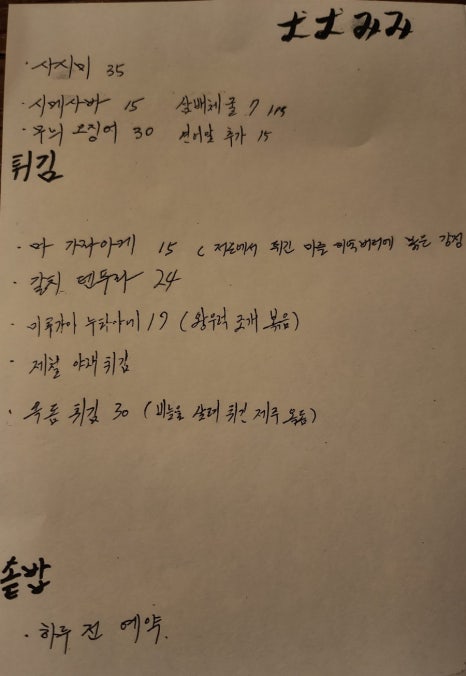 士士みみ
· 사시미 35
· 시메사바 15 삼배체굴 7 / 1PS
· 무늬 오징어 30 연어알 추가 15
튀김
· 마 가라아게 15 ( 저온에서 튀긴 마를 미소버터에 볶은 강정
· 갈치 텐투라 24
· 미루가이 누타아에 19 (왕우럭 조개 볶음)
· 제철 야채 튀김
· 옥돔 튀김 30 (비늘을 살려 튀긴 제주 옥돔)
솥밥
· 하루 전 예약.